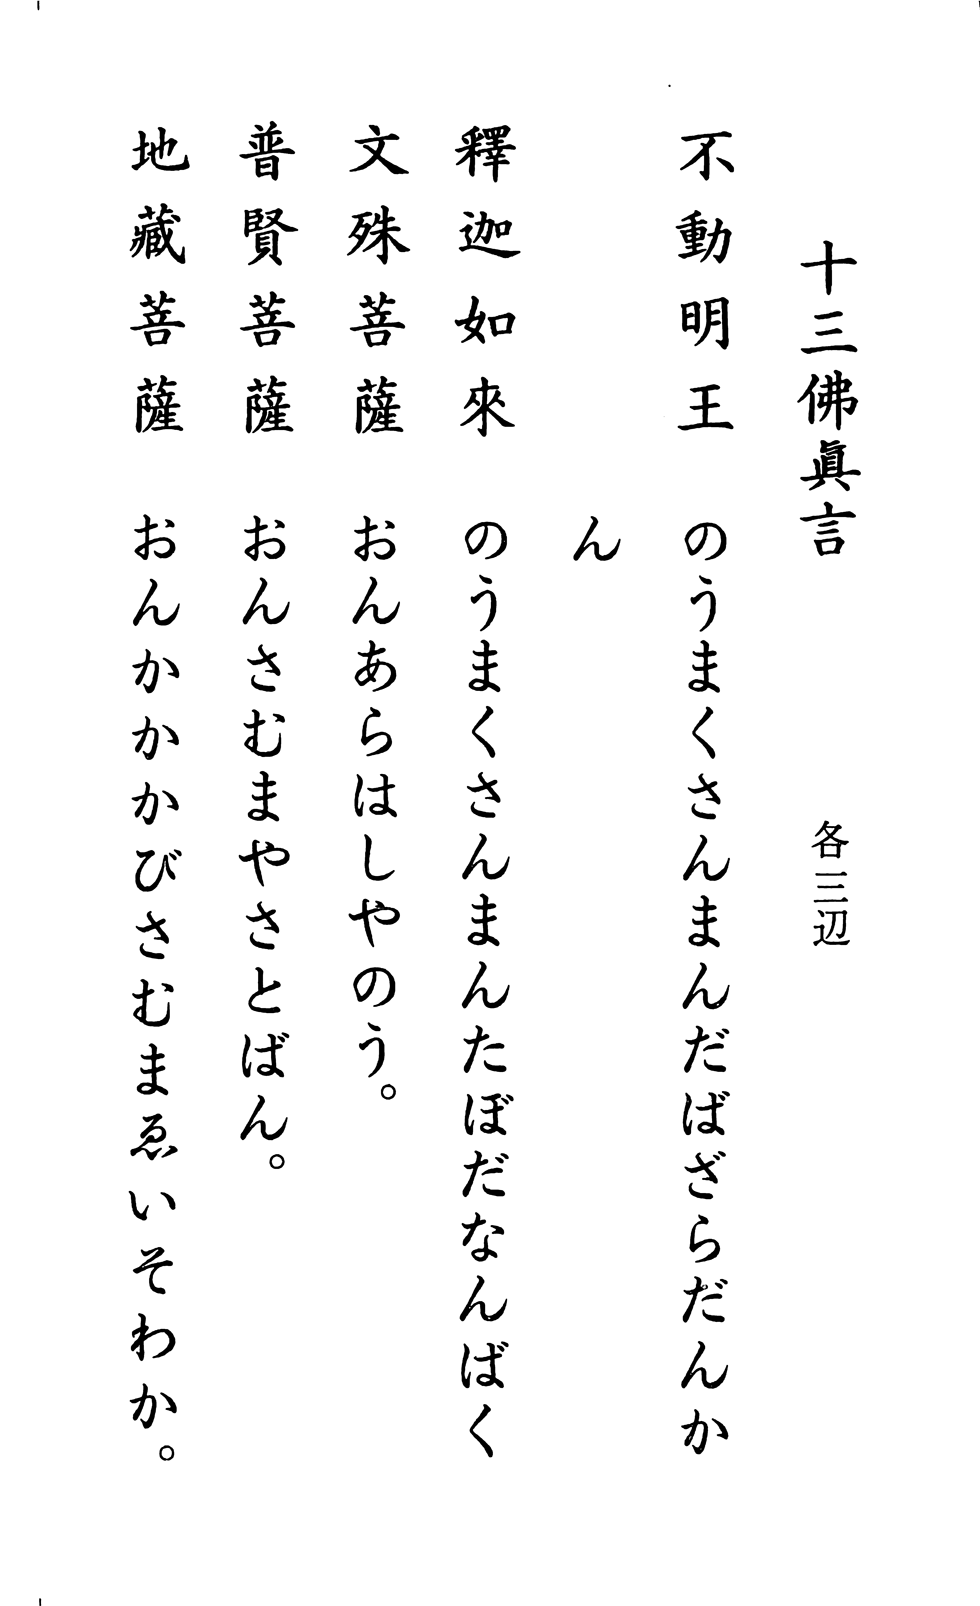 十三佛眞言 各三辺
不動明王 のうまくさんまんだばざらだんか
ん
釋迦如來 のうまくさんまんたぼだなんばく
文殊菩薩 おんあらはしやのう。
普賢菩薩 おんさむまやさとばん。
地藏菩薩 おんかかかびさむまゑいそわか。